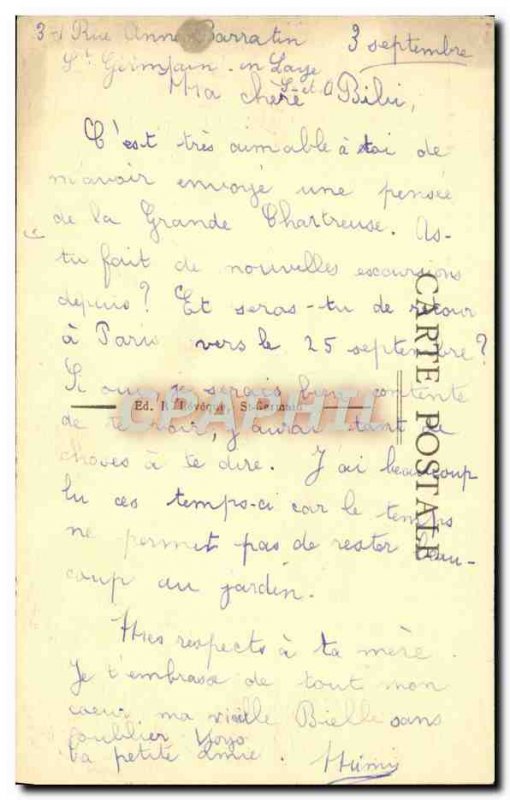 Rue Anne Barratin 3 septembre
St Germain en Laye
S. et O
Ma chère Bibi,
C'est très aimable à toi de
m'avoir envoyé une pensée
de la Grande Chartreuse. As-
tu fait de nouvelles excursions
depuis? Et seras-tu de retour
à Paris vers le 25 septembre?
Si oui je serais bien contente
Ed. St-Germain
CPAPHIL
de te voir, j'aurai tant de
choses à te dire. J'ai beaucoup
lu ces temps-ci car le temps
ne permet pas de rester beau-
coup au jardin.
Mes respects à ta mère.
Je t'embrasse de tout mon
coeur ma vieille Bielle sans
oublier Yoyo
ta petite amie.
CARTE POSTALE